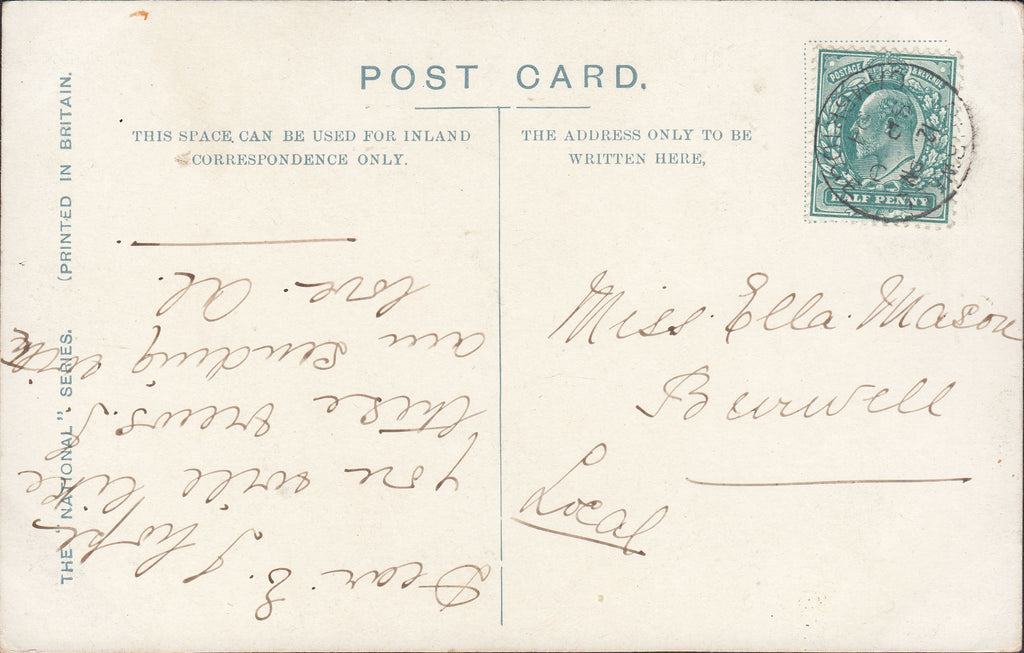 POST CARD.
THIS SPACE CAN BE USED FOR INLAND
CORRESPONDENCE ONLY.
THE ADDRESS ONLY TO BE
WRITTEN HERE,
THE "NATIONAL" SERIES. (PRINTED IN BRITAIN.
POSTAGE & REVENUE
HALF PENNY
Dear E. I hope
you will like
these views. I
am sending with
love. Al.
Miss. Ella. Mason
Burwell
Local